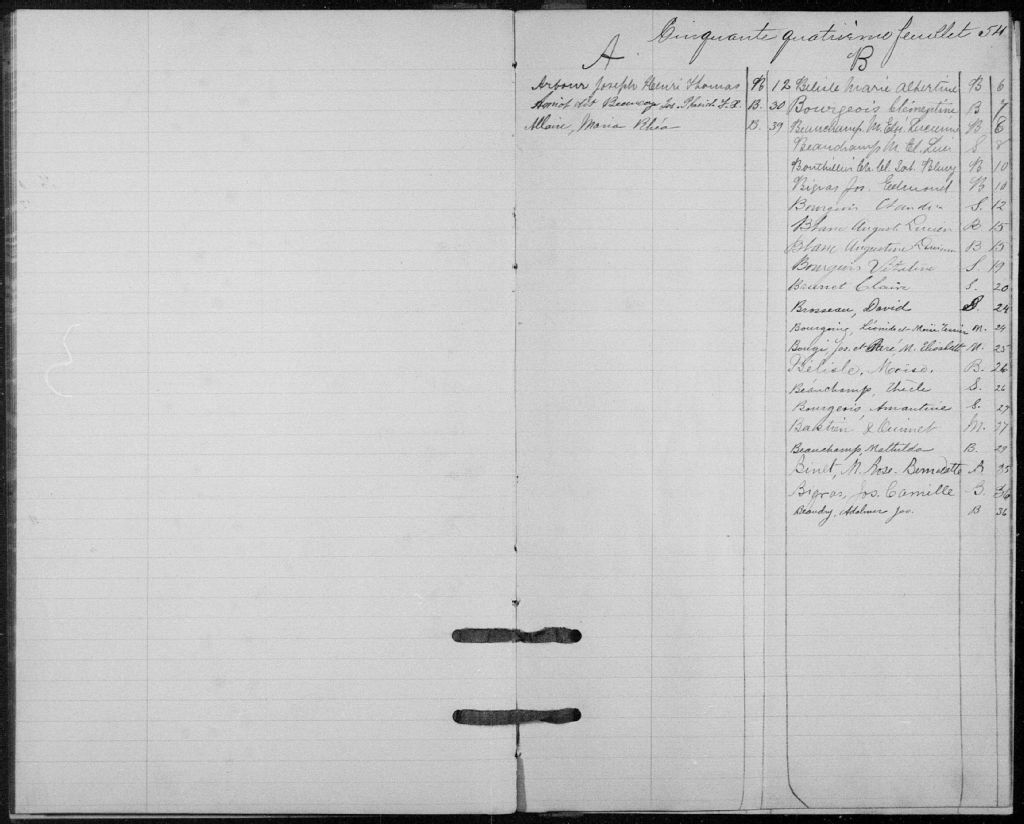 Cinquante quatrième feuillet 54
A
Arbour Joseph Henri Thomas B 12
Amiot dit Jos. F.X. B. 30
Allaire, Maria Rhéa B. 39
B
Belisle Marie Albertine B 6
Bourgeois Clémentine B 7
Beauchamp M. Lucienne B 8
Beauchamp M. El. Luci S 8
B 10
Bigras Jos. Edmond B 10
Bourgeois S. 12
Blanc August Lucien B. 15
Blanc Augustine B 15
Bourgeois Vitaline S. 19
Brunet Claire S. 20
Brosseau, David S. 24
Bourgoing, Léonide et Marie M. 24
Bougi Jos. et Paré M. Elisabeth M. 25
Bélisle, Moïse. B. 26
Beauchamp, Uncle S. 26
Bourgeois Amantine S. 27
Bastien & Ouimet M. 27
Beauchamp, Mathilda B. 29
Binet, M. Rose. Bernadette 35
Bigras, Jos. Camille B. 36
Beaudry, Adelmar Jos. B 36